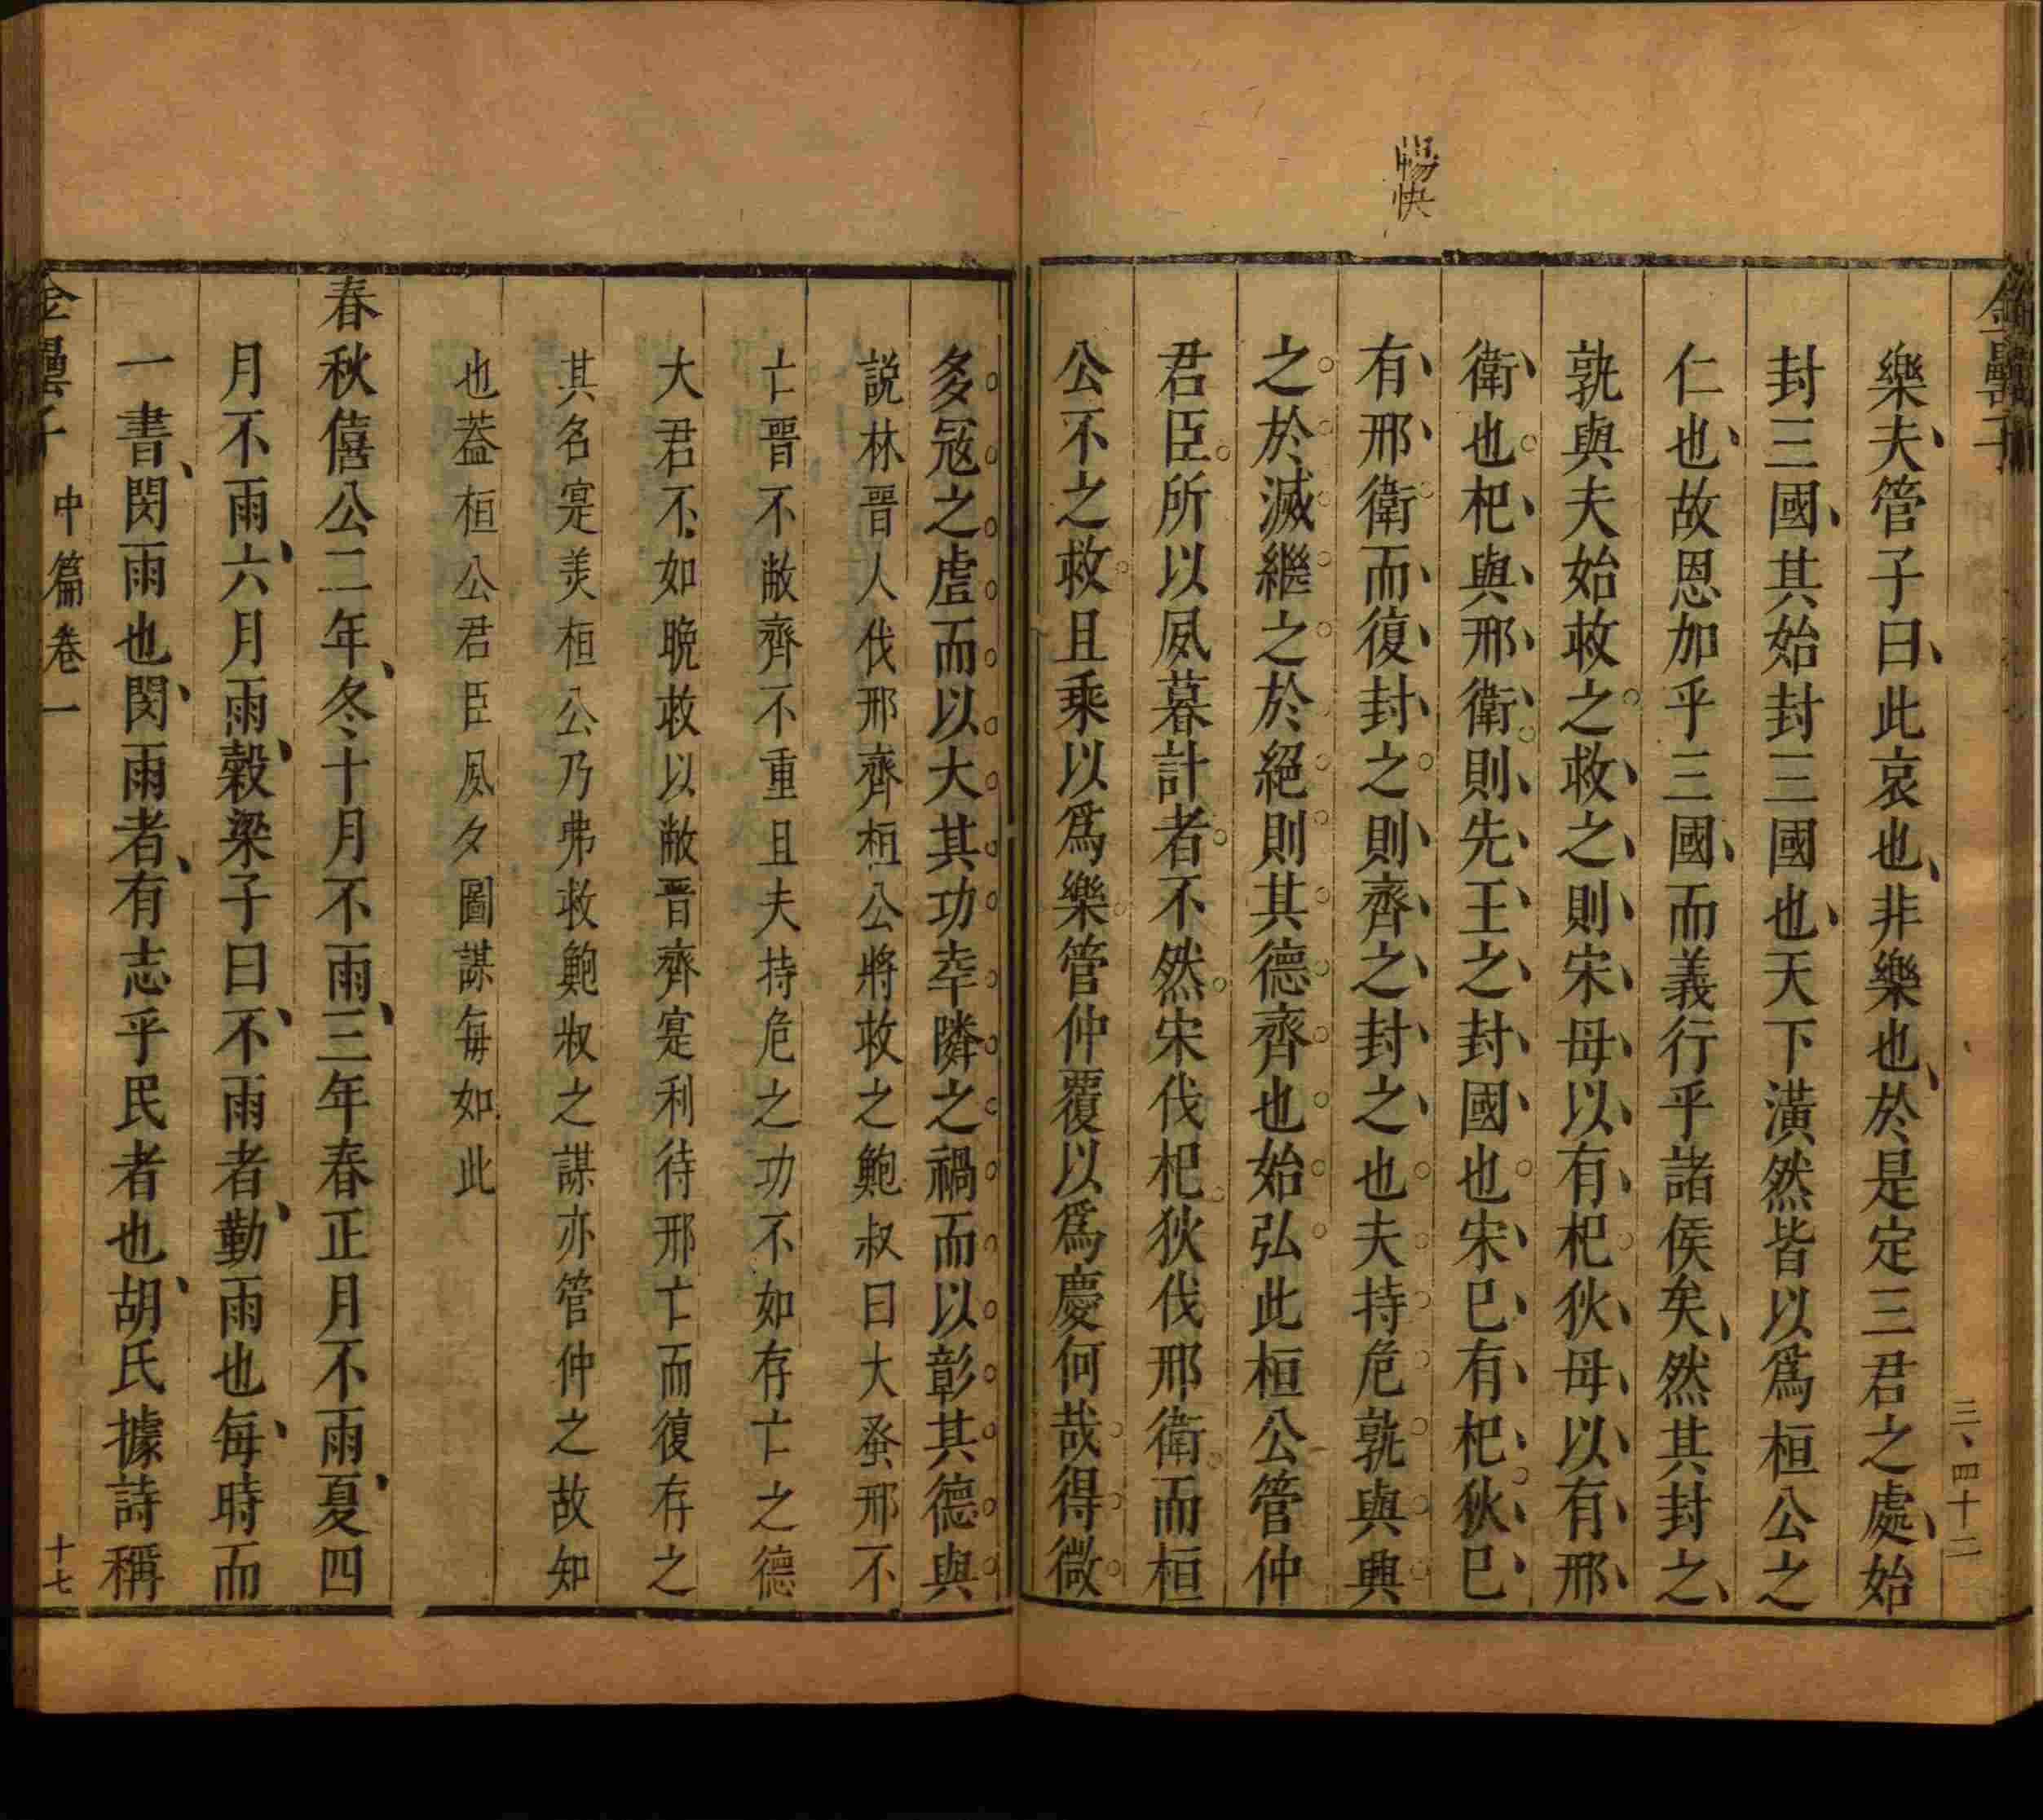 暢快
金罍子
三、四十二
樂夫管子曰此哀也非樂也於是定三君之處始
封三國其始封三國也天下潢然皆以爲桓公之
仁也故恩加乎三國而義行乎諸侯矣然其封之
孰與夫始救之救之則宋毋以有杞狄毋以有邢
衛也杞與邢衛則先王之封國也宋巳有杞狄巳
有邢衛而復封之則齊之封之也夫持危孰與興
之於滅繼之於絕則其德齊也始弘此桓公管仲
君臣所以夙暮計者不然宋伐杞狄伐邢衛而桓
公不之救且乘以爲樂管仲覆以爲慶何哉得微
多冦之虐而以大其功幸隣之禍而以彰其德與
説林晉人伐邢齊桓公將救之鮑叔曰大蚤邢不
亡晉不敝齊不重且夫持危之功不如存亡之德
大君不如晚救以敝晉齊寔利待邢亡而復存之
其名寔美桓公乃弗救鮑叔之謀亦管仲之故知
也葢桓公君臣夙夕圖謀每如此
春秋僖公二年冬十月不雨三年春正月不雨夏四
月不雨六月雨穀梁子曰不雨者勤雨也每時而
一書閔雨也閔雨者有志乎民者也胡氏據詩稱
金罍子 中篇卷一 十七